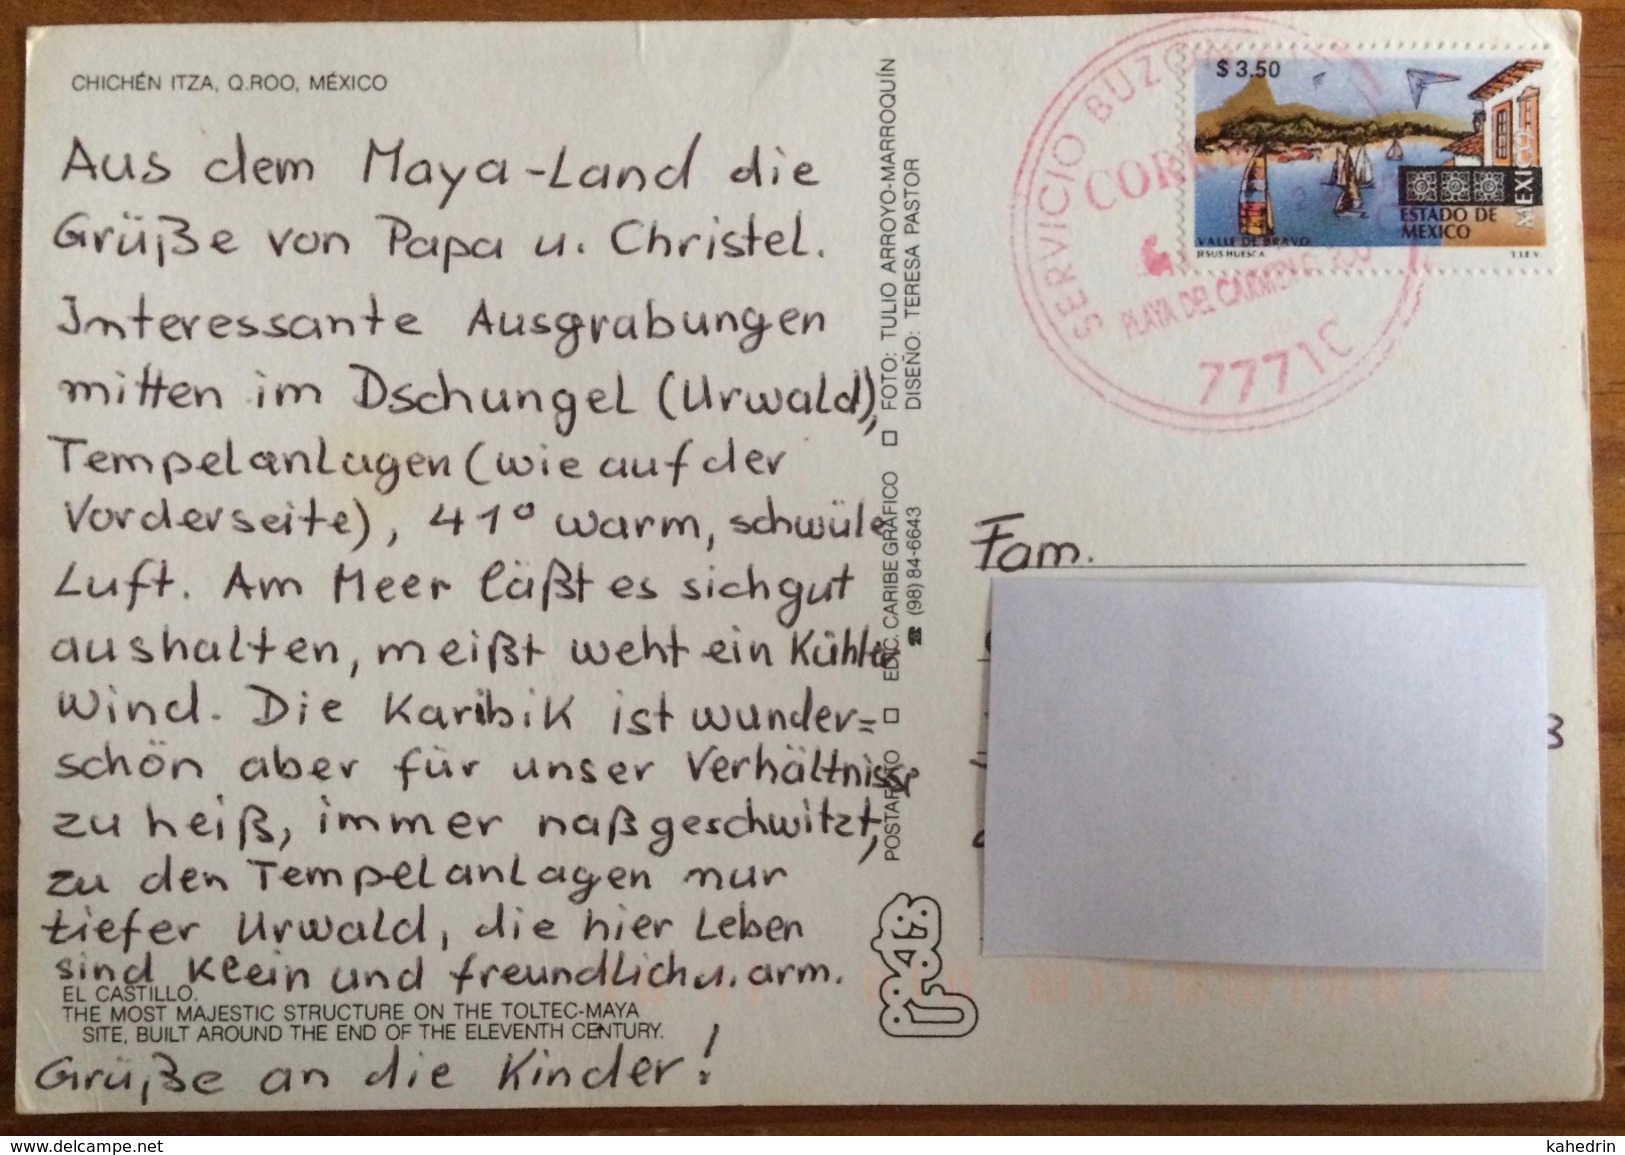 CHICHÉN ITZA, Q.ROO, MÉXICO
Aus dem Maya-Land die
Grüße von Papa u. Christel.
Interessante Ausgrabungen
mitten im Dschungel (Urwald),
Tempelanlagen (wie auf der
Vorderseite), 41° warm, schwüle
Luft. Am Meer läßt es sich gut
aushalten, meißt weht ein kühler
Wind. Die Karibik ist wunder=
schön aber für unser Verhältnisse
zu heiß, immer naßgeschwitzt,
zu den Tempelanlagen nur
tiefer Urwald, die hier Leben
sind klein und freundlich u. arm.
EL CASTILLO.
THE MOST MAJESTIC STRUCTURE ON THE TOLTEC-MAYA
SITE, BUILT AROUND THE END OF THE ELEVENTH CENTURY.
Grüße an die Kinder!
POSTARTO □ EDIC. CARIBE GRAFICO □ FOTO: TULIO ARROYO-MARROQUÍN
☎ (98) 84-6643 DISEÑO: TERESA PASTOR
SERVICIO BUZON
PLAYA DEL CARMEN
7771C
$ 3.50
MEXICO
ESTADO DE
MEXICO
VALLE DE BRAVO
JESUS HUESCA
T.I.E.V.
Fam.
www.delcampe.net
kahedrin